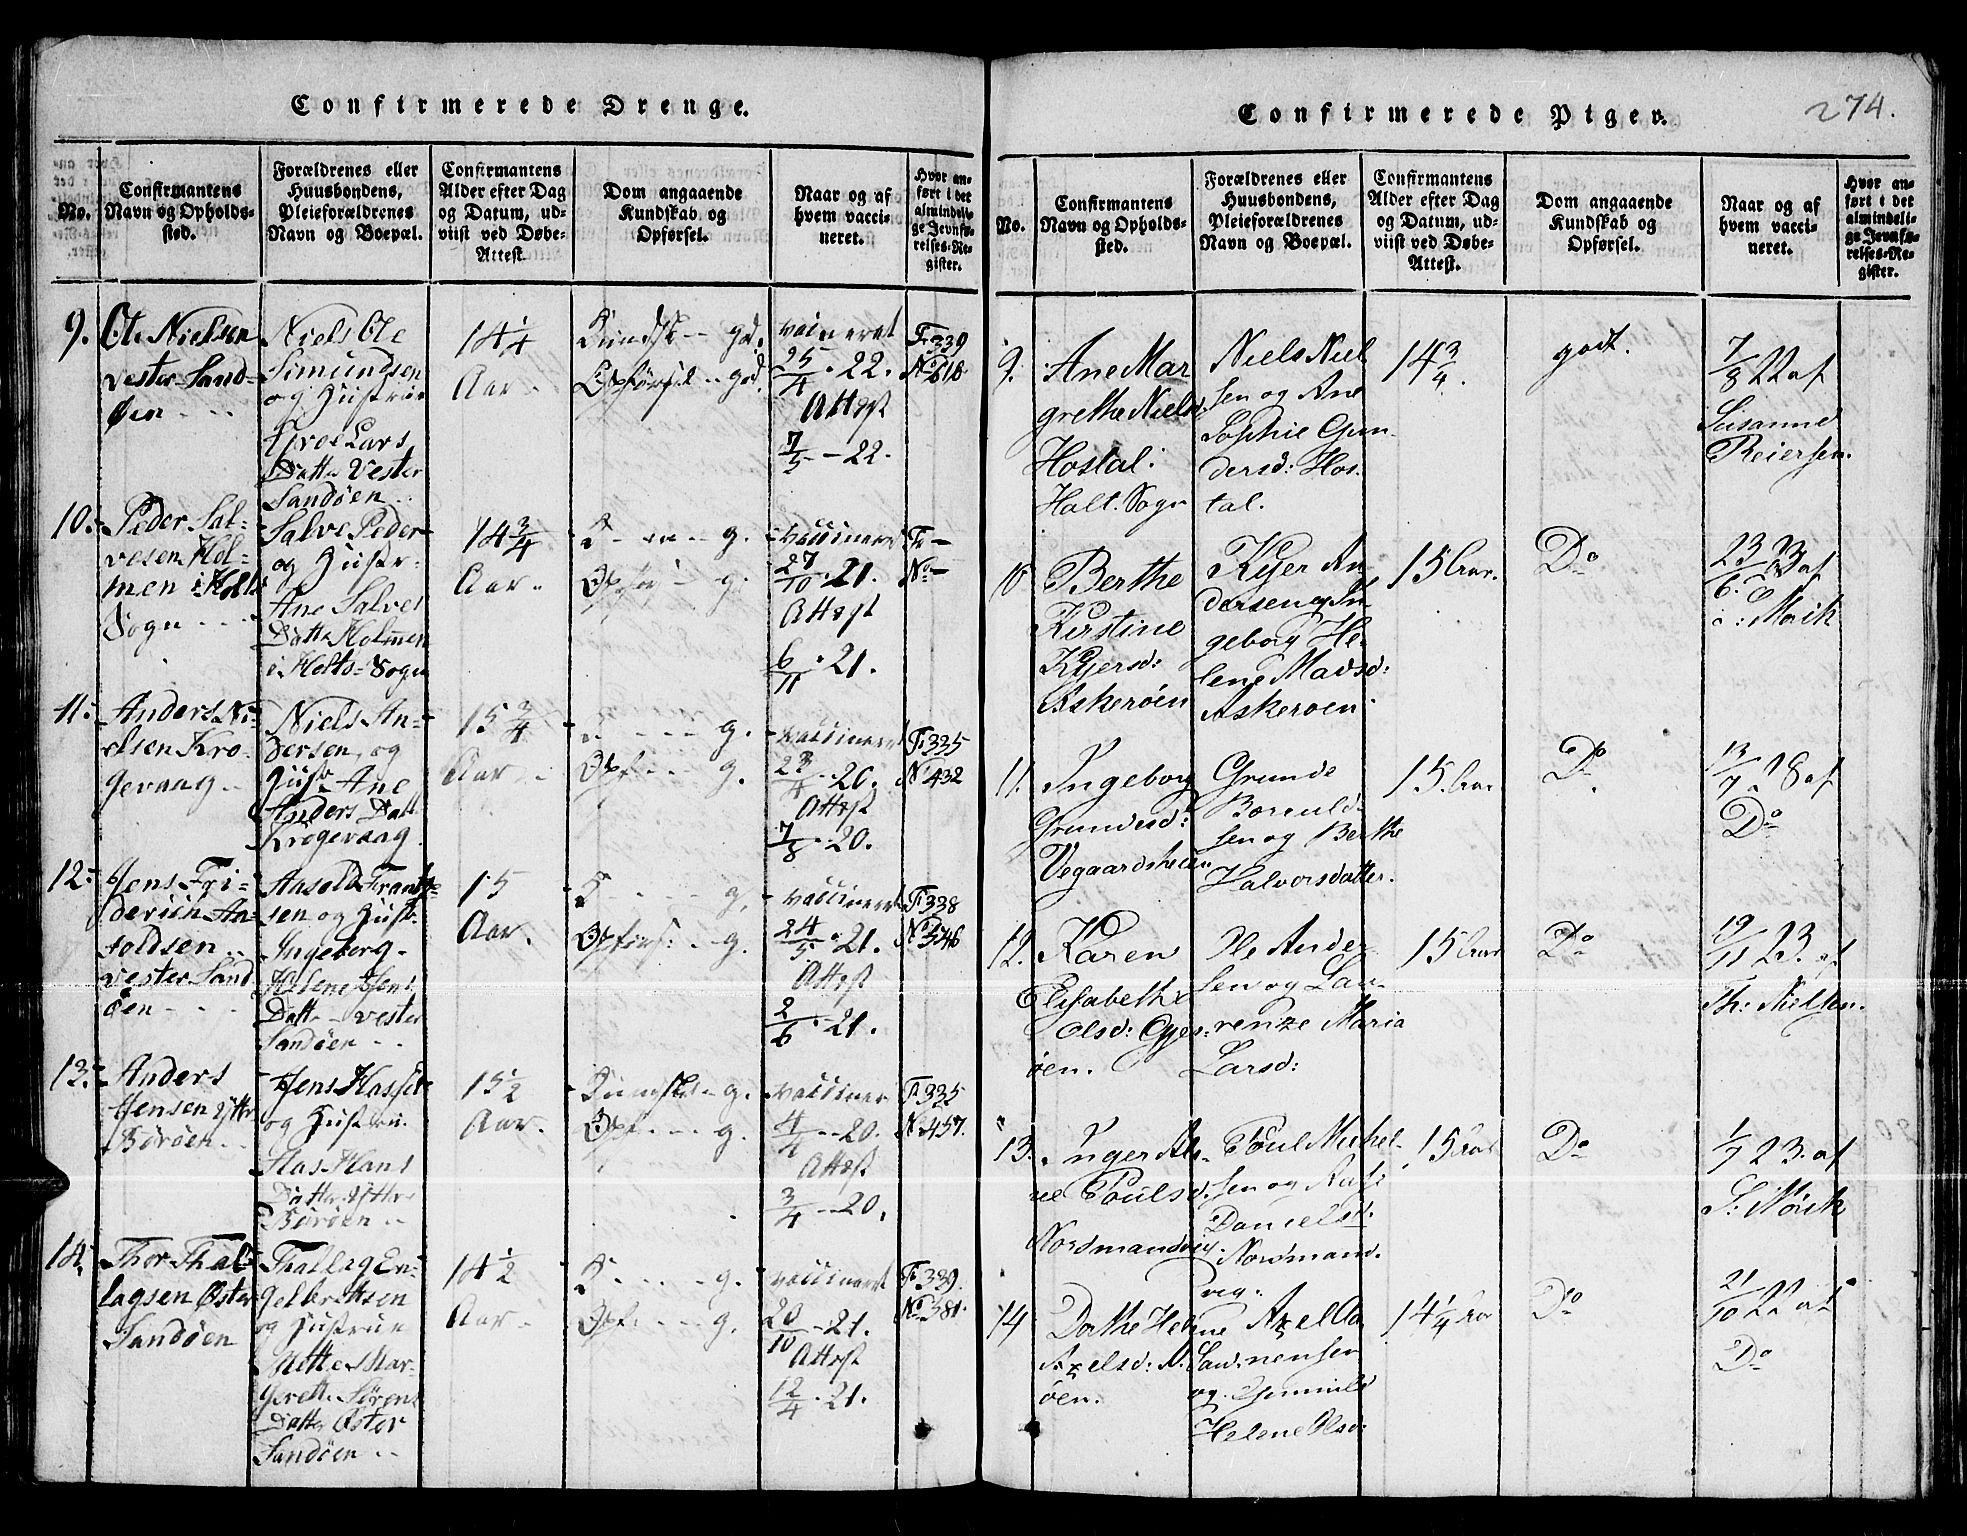 Confirmerede Drenge.
No.
Confirmantens
Navn og Opholds-
sted.
Forældrenes eller
Huusbondens,
Pleieforældrenes
Navn og Boepæl.
Confirmantens
Alder efter Dag
og Datum, ud-
viist ved Døbe-
Attest.
Dom angaaende
Kundskab og
Opførsel.
Naar og af
hvem vacci-
neret.
Hvor an-
ført i det
almindeli-
ge Jevnfø-
relses-Re-
gister.
9.
Ole Nielsen
Vester-Sand-
Øen
Niels Ole
Simundsen
og Hustrue
Groe Lars
Datte Vester
Sandøen
14 1/4
Aar
Kundsk -- gd.
Opførsel -- gd.
vaccineret
25/4 . 22.
Attest
7/5 - 22.
F. 339
No 618
10.
Peder Sal-
vesen Hol-
men i Holts
Sogn
Salve Peder
og Hustr-
Ane Salves
Datte Holmen
i Holts-Sogn
14 3/4
Aar
K - - - g.
Opfør - g.
vaccineret
27/10 . 21.
Attest
6/11 . 21.
Fr -
No -
11.
Anders Ni-
elsen Kro-
gevaag
Niels An-
dersen, og
Hust. Ane
Anders Datt
Krogevaag
15 3/4
Aar
K - - - g.
Opf - - - g.
vaccineret
23/4 - 20.
Attest
7/8 - 20.
F. 335
No 432
12.
Jens Fri-
derich An-
soldsen
Vester Sand
øen
Ansold Frants-
sen og Hust.
Ingeborg
Helene Jens
Datte - Vester
Sandøen
15
Aar.
K - - - g.
Opførs: - - g.
vaccineret
24/5 . 21.
Attest
2/6 . 21.
F. 338
No 546
13.
Anders
Jensen Yttre
Børøen
Jens Hassel
og Hustru.
Aas Hans
Datte Yttre
Børøen
15 1/2
Aar.
Kundsk - g.
Opf - - - g.
vacciner
4/4 - 20.
Attest
3/4 - 20.
F. 335
No 457.
14.
Thor Thal-
lagsen Øster
Sandøen
Thallag En-
gelbrektsen
og Hustrue
Mette Mar-
grett. Sørens
Datte Øster
Sandøen
14 1/2
Aar
K - - - g.
Opf - - - g.
vaccineret
20/10 - 21.
Attest
12/4 . 21.
F. 339.
No 381.
Confirmerede Piger.
274.
No.
Confirmantens
Navn og Opholds-
sted.
Forældrenes eller
Huusbondens,
Pleieforældrenes
Navn og Boepæl.
Confirmantens
Alder efter Dag
og Datum, ud-
viist ved Døbe-
Attest.
Dom angaaende
Kundskab og
Opførsel.
Naar og af
hvem vacci-
neret.
Hvor an-
ført i det
almindeli-
ge Jevnfø-
relses-Re-
gister.
9.
Ane Mar
grethe Nielsd:
Hostal.
Holt. Sogn
Niels Niel
sen og Ane
Sophie Gun
dersd: Hos
tal.
14 3/4.
godt.
7/8 22 af
Susanne
Reiersen.
10
Berthe
Kirstine
Kyersd:
Askerøen
Kyer An
dersen og In
geborg He
lene Madsd:
Askerøen
15 Aar.
Do
23/6. 23 af
S: Mørik
11.
Ingeborg
Grundesd:
Vegaardsheien
Grunde
Boreuld-
sen og Berthe
Halvorsdatter.
15. Aar
Do
13/7 . 18 af
Do
12.
Karen
Elisabeth
Olsd: Gjes:
øen.
Ole Ander
sen og Lau
renze Maria
Larsd:
15 Aar
Do
19/11 23. af
Th: Nielsen.
13.
Inger Al-
ne Poulsd:
Nordmandvig.
Poul Michel-
sen og Aase
Danielsd.
Nordmand.
vig.
15 Aar
Do
1/7 23. af
S: Mørik
14
Dorthe Heline
Axelsd: N. Sand-
øen.
Axel Aa
nensen
og Gunnild
Helene Olsd:
14 1/4 Aar
Do
21/10 22 af
Do